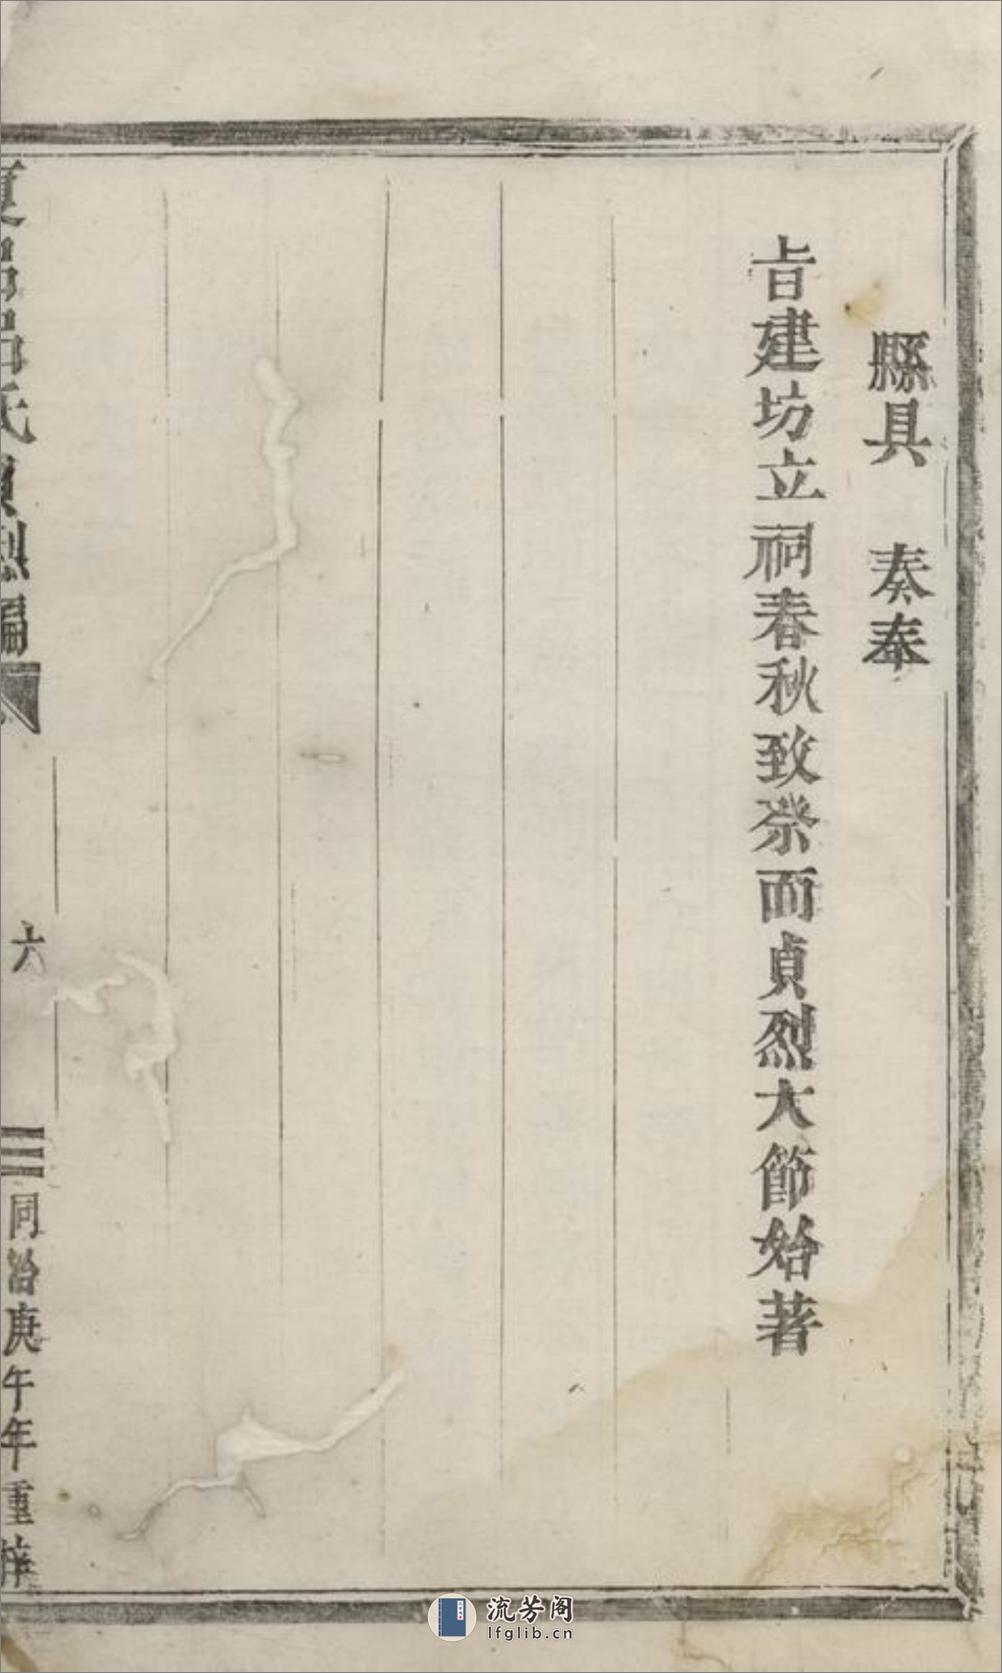 縣具　奏奉
旨建坊立祠春秋致祭而貞烈大節始著
呂氏貞烈編
六
同治庚午年重梓
流芳阁
lfglib.cn